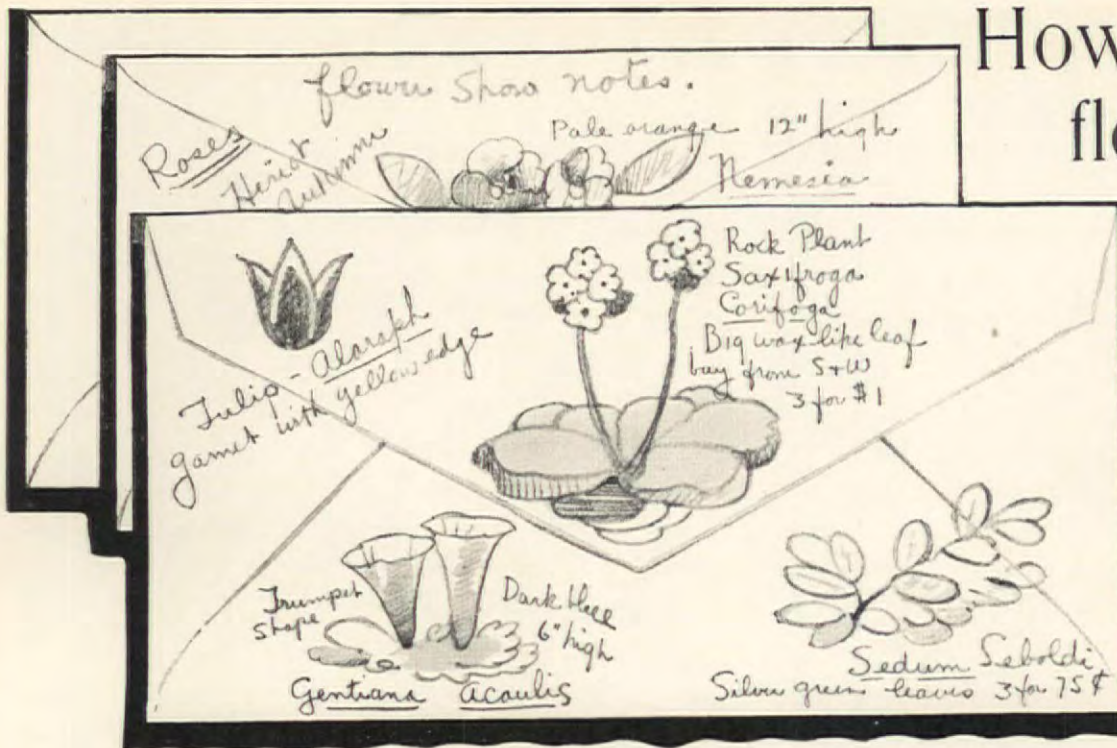 How
flo
flower show notes.
Roses
Heriot
Autumn
Pale orange 12" high
Nemesia
Tulip - Alaraph
garnet with yellow edge
Rock Plant
Saxifroga
Corifoga
Big wax-like leaf
buy from S+W
3 for $1
Trumpet
shape
Dark blue
6" high
Gentiana acaulis
Sedum Seboldi
Silver green leaves 3 for 75¢